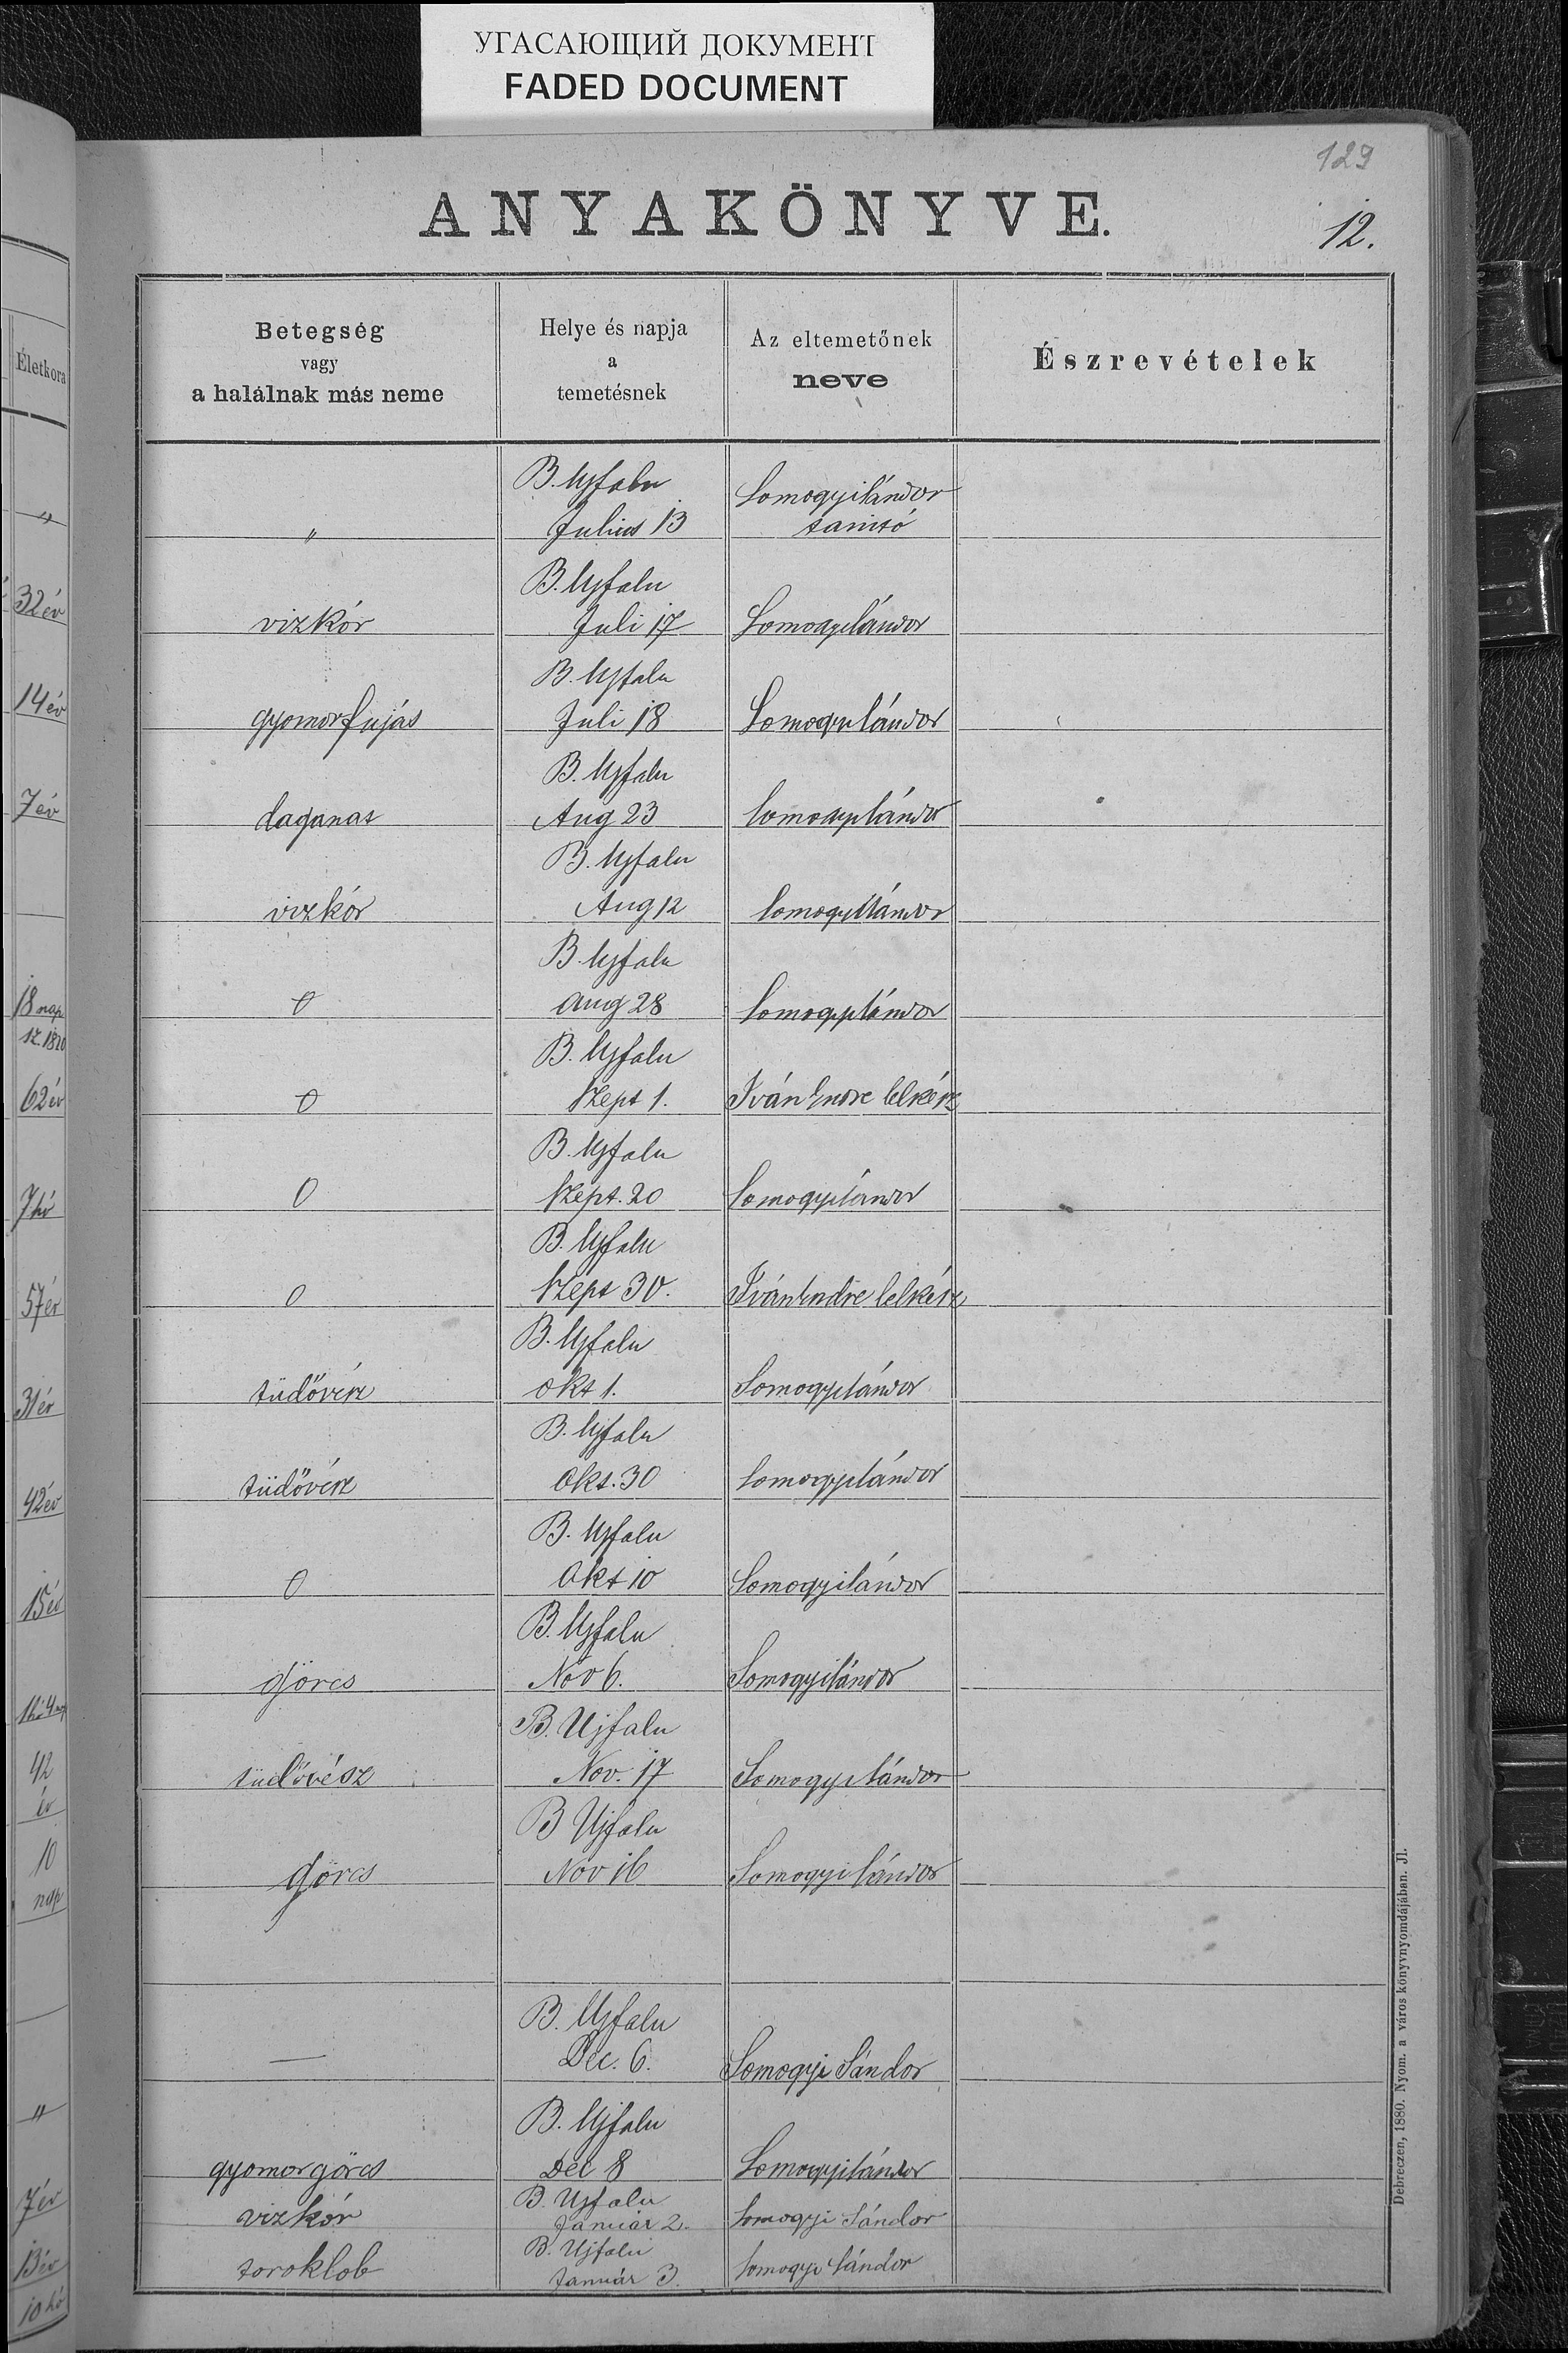 УГАСАЮЩИЙ ДОКУМЕНТ
FADED DOCUMENT
129
ANYAKÖNYVE.
12.
Életkora
Betegség
vagy
a halálnak más neme
Helye és napja
a
temetésnek
Az eltemetőnek
neve
Észrevételek
B. Ujfalu Somogyi Sándor
" " Julius 13 tanitó
B. Ujfalu
32 év vizkór Juli 17 Somogyi Sándor
B. Ujfalu
14 év gyomorfujás Juli 18 Somogyi Sándor
B. Ujfalu
7 év daganat Aug 23 Somogyi Sándor
B. Ujfalu
vizkór Aug 12 Somogyi Sándor
B. Ujfalu
18 nap 0 aug 28 Somogyi Sándor
B. Ujfalu
62 év 0 Szept 1. Iván Endre lelkész
B. Ujfalu
7 hó 0 Szept. 20 Somogyi Sándor
B. Ujfalu
57 év 0 Szept 30. Iván Endre lelkész
B. Ujfalu
31 év tüdővész okt 1. Somogyi Sándor
B. Ujfalu
42 év tüdővész Okt. 30 Somogyi Sándor
B. Ujfalu
15 év 0 Okt 10 Somogyi Sándor
B. Ujfalu
görcs Nov 6. Somogyi Sándor
42 B. Ujfalu
év tüdővész Nov. 17 Somogyi Sándor
10 B Ujfalu
nap görcs Nov 16 Somogyi Sándor
B. Ujfalu
— Dec. 6. Somogyi Sándor
" B. Ujfalu
gyomorgörcs Dec 8 Somogyi Sándor
7 év B. Ujfalu
vizkór Január 2. Somogyi Sándor
13 év B. Ujfalu
10 hó toroklob Január 3. Somogyi Sándor
Debreczen, 1880. Nyom. a város könyvnyomdájában. Jl.